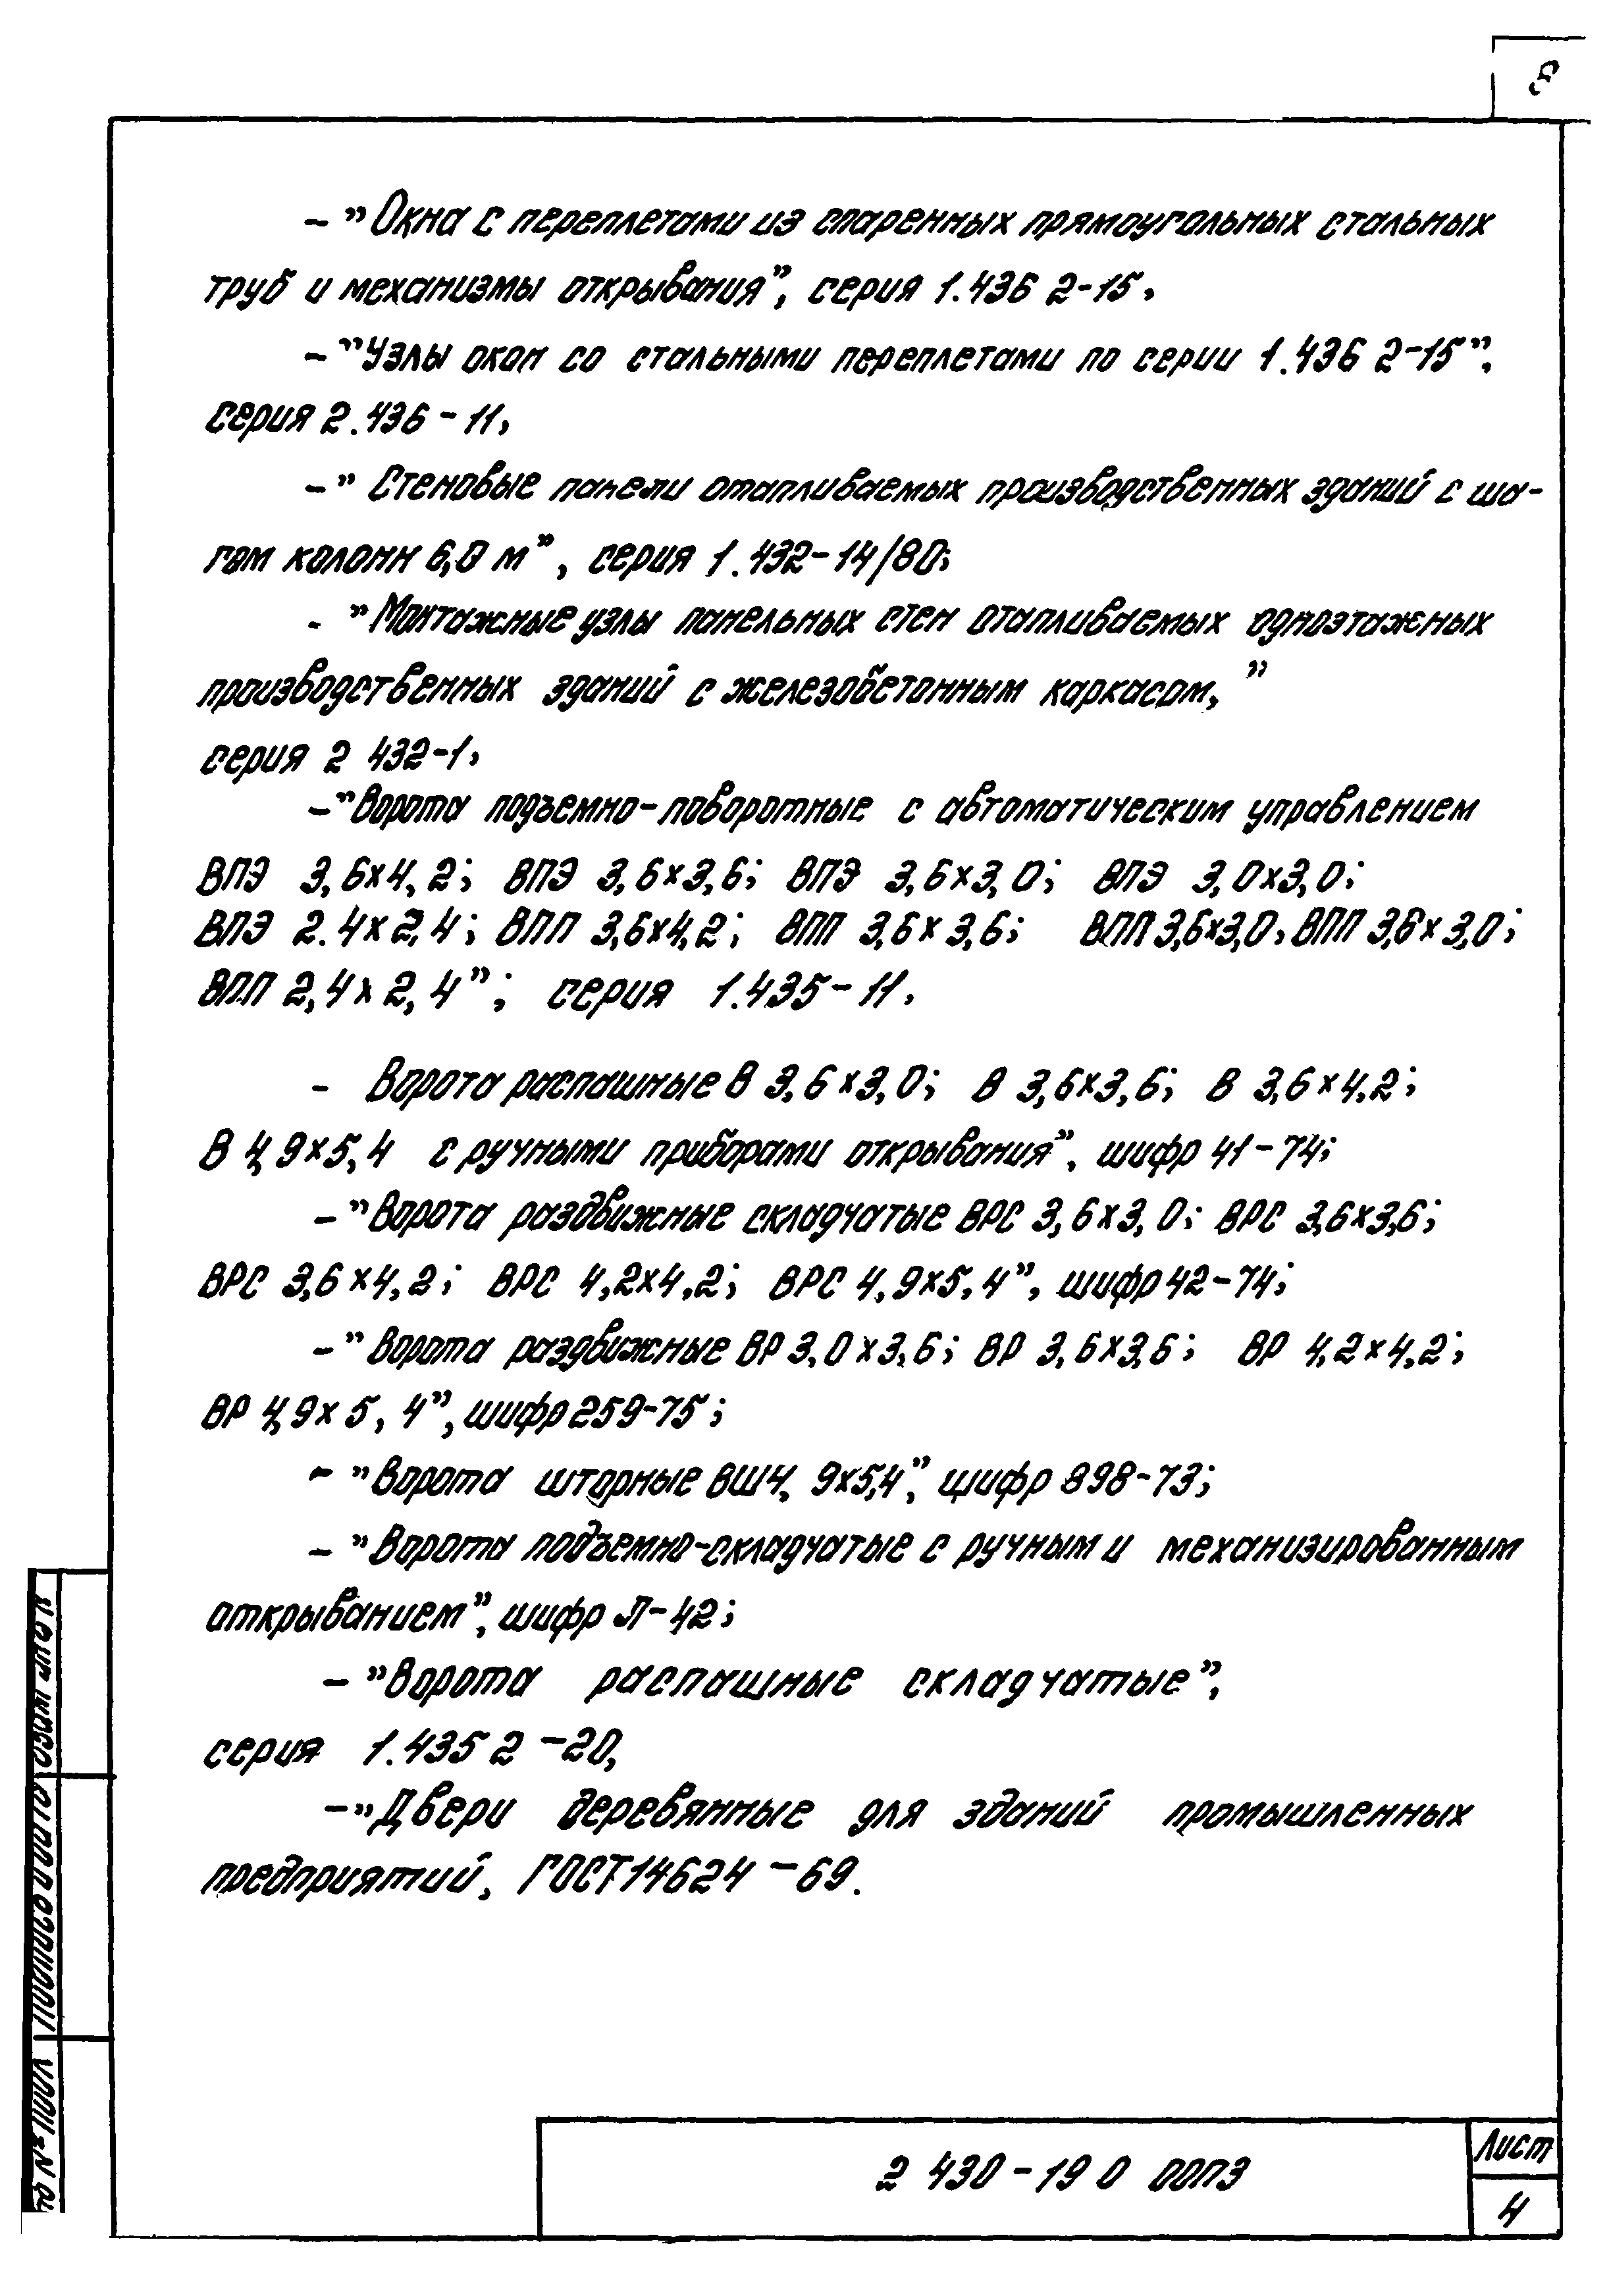 8
– "Окна с переплетами из спаренных прямоугольных стальных
труб и механизмы открывания", серия 1.436 2-15,
– "Узлы окон со стальными переплетами по серии 1.436 2-15",
серия 2.436-11,
– " Стеновые панели отапливаемых производственных зданий с ша-
гом колонн 6,0 м", серия 1.432-14/80;
- "Монтажные узлы панельных стен отапливаемых одноэтажных
производственных зданий с железобетонным каркасом,"
серия 2 432-1,
– "Ворота подъемно-поворотные с автоматическим управлением
ВПЭ 3,6х4,2; ВПЭ 3,6х3,6; ВПЭ 3,6х3,0; ВПЭ 3,0х3,0;
ВПЭ 2.4х2,4; ВПП 3,6х4,2; ВПП 3,6х3,6; ВПП 3,6х3,0, ВПП 3,6х3,0;
ВПП 2,4х2,4"; серия 1.435-11,
- Ворота распашные В 3,6х3,0; В 3,6х3,6; В 3,6х4,2;
В 4,9х5,4 с ручными приборами открывания", шифр 41-74;
– "Ворота раздвижные складчатые ВРС 3,6х3,0; ВРС 3,6х3,6;
ВРС 3,6х4,2; ВРС 4,2х4,2; ВРС 4,9х5,4", шифр 42-74;
– "Ворота раздвижные ВР 3,0х3,6; ВР 3,6х3,6; ВР 4,2х4,2;
ВР 4,9х5,4", шифр 259-75;
– "Ворота шторные ВШ4,9х5,4", шифр 898-73;
– "Ворота подъемно-складчатые с ручным и механизированным
открыванием", шифр Л-42;
– "Ворота распашные складчатые",
серия 1.435 2-20,
– "Двери деревянные для зданий промышленных
предприятий, ГОСТ14624-69.
2 430-19 0 00ПЗ
Лист
4